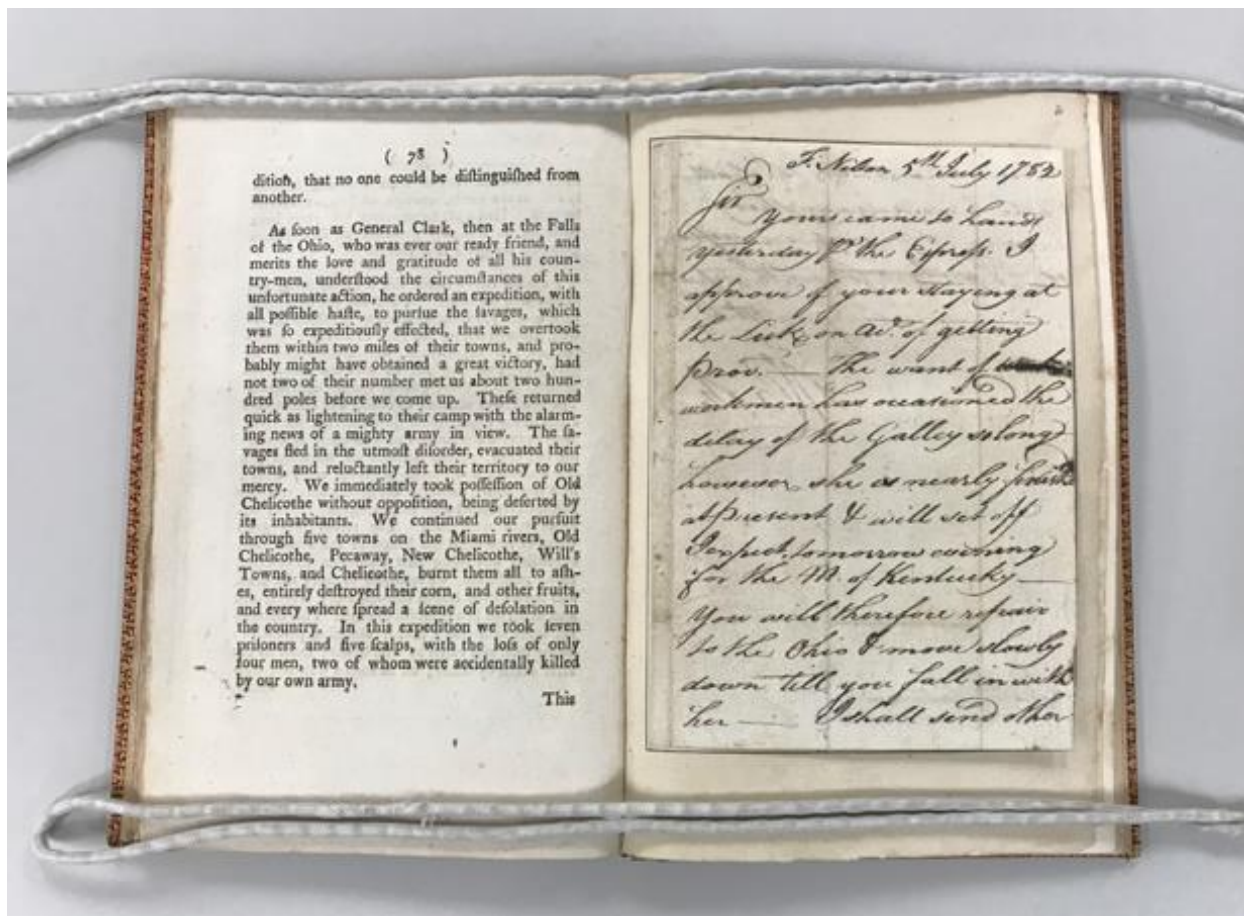 ( 78 )
dition, that no one could be diſtinguiſhed from
another.
As ſoon as General Clark, then at the Falls
of the Ohio, who was ever our ready friend, and
merits the love and gratitude of all his coun-
try-men, underſtood the circumſtances of this
unfortunate action, he ordered an expedition, with
all poſſible haſte, to purſue the ſavages, which
was ſo expeditiouſly effected, that we overtook
them within two miles of their towns, and pro-
bably might have obtained a great victory, had
not two of their number met us about two hun-
dred poles before we come up. Theſe returned
quick as lightening to their camp with the alarm-
ing news of a mighty army in view. The ſa-
vages fled in the utmoſt diſorder, evacuated their
towns, and reluctantly left their territory to our
mercy. We immediately took poſſeſſion of Old
Chelicothe without oppoſition, being deſerted by
its inhabitants. We continued our purſuit
through five towns on the Miami rivers, Old
Chelicothe, Pecaway, New Chelicothe, Will's
Towns, and Chelicothe, burnt them all to aſh-
es, entirely deſtroyed their corn, and other fruits,
and every where ſpread a ſcene of deſolation in
the country. In this expedition we took ſeven
priſoners and five ſcalps, with the loſs of only
four men, two of whom were accidentally killed
by our own army.
This
2
F. Nelson 5th July 1782
Sir
Yours came to hand
yesterday pr the Expreſs. I
approve of your staying at
the Lick on Act. of getting
prov. — The want of
workmen has occasioned the
delay of the Galley so long
however she is nearly
at present & will set off
I expect tomorrow evening
for the M. of Kentucky —
You will therefore repair
to the Ohio & move slowly
down till you fall in with
her — I shall send other